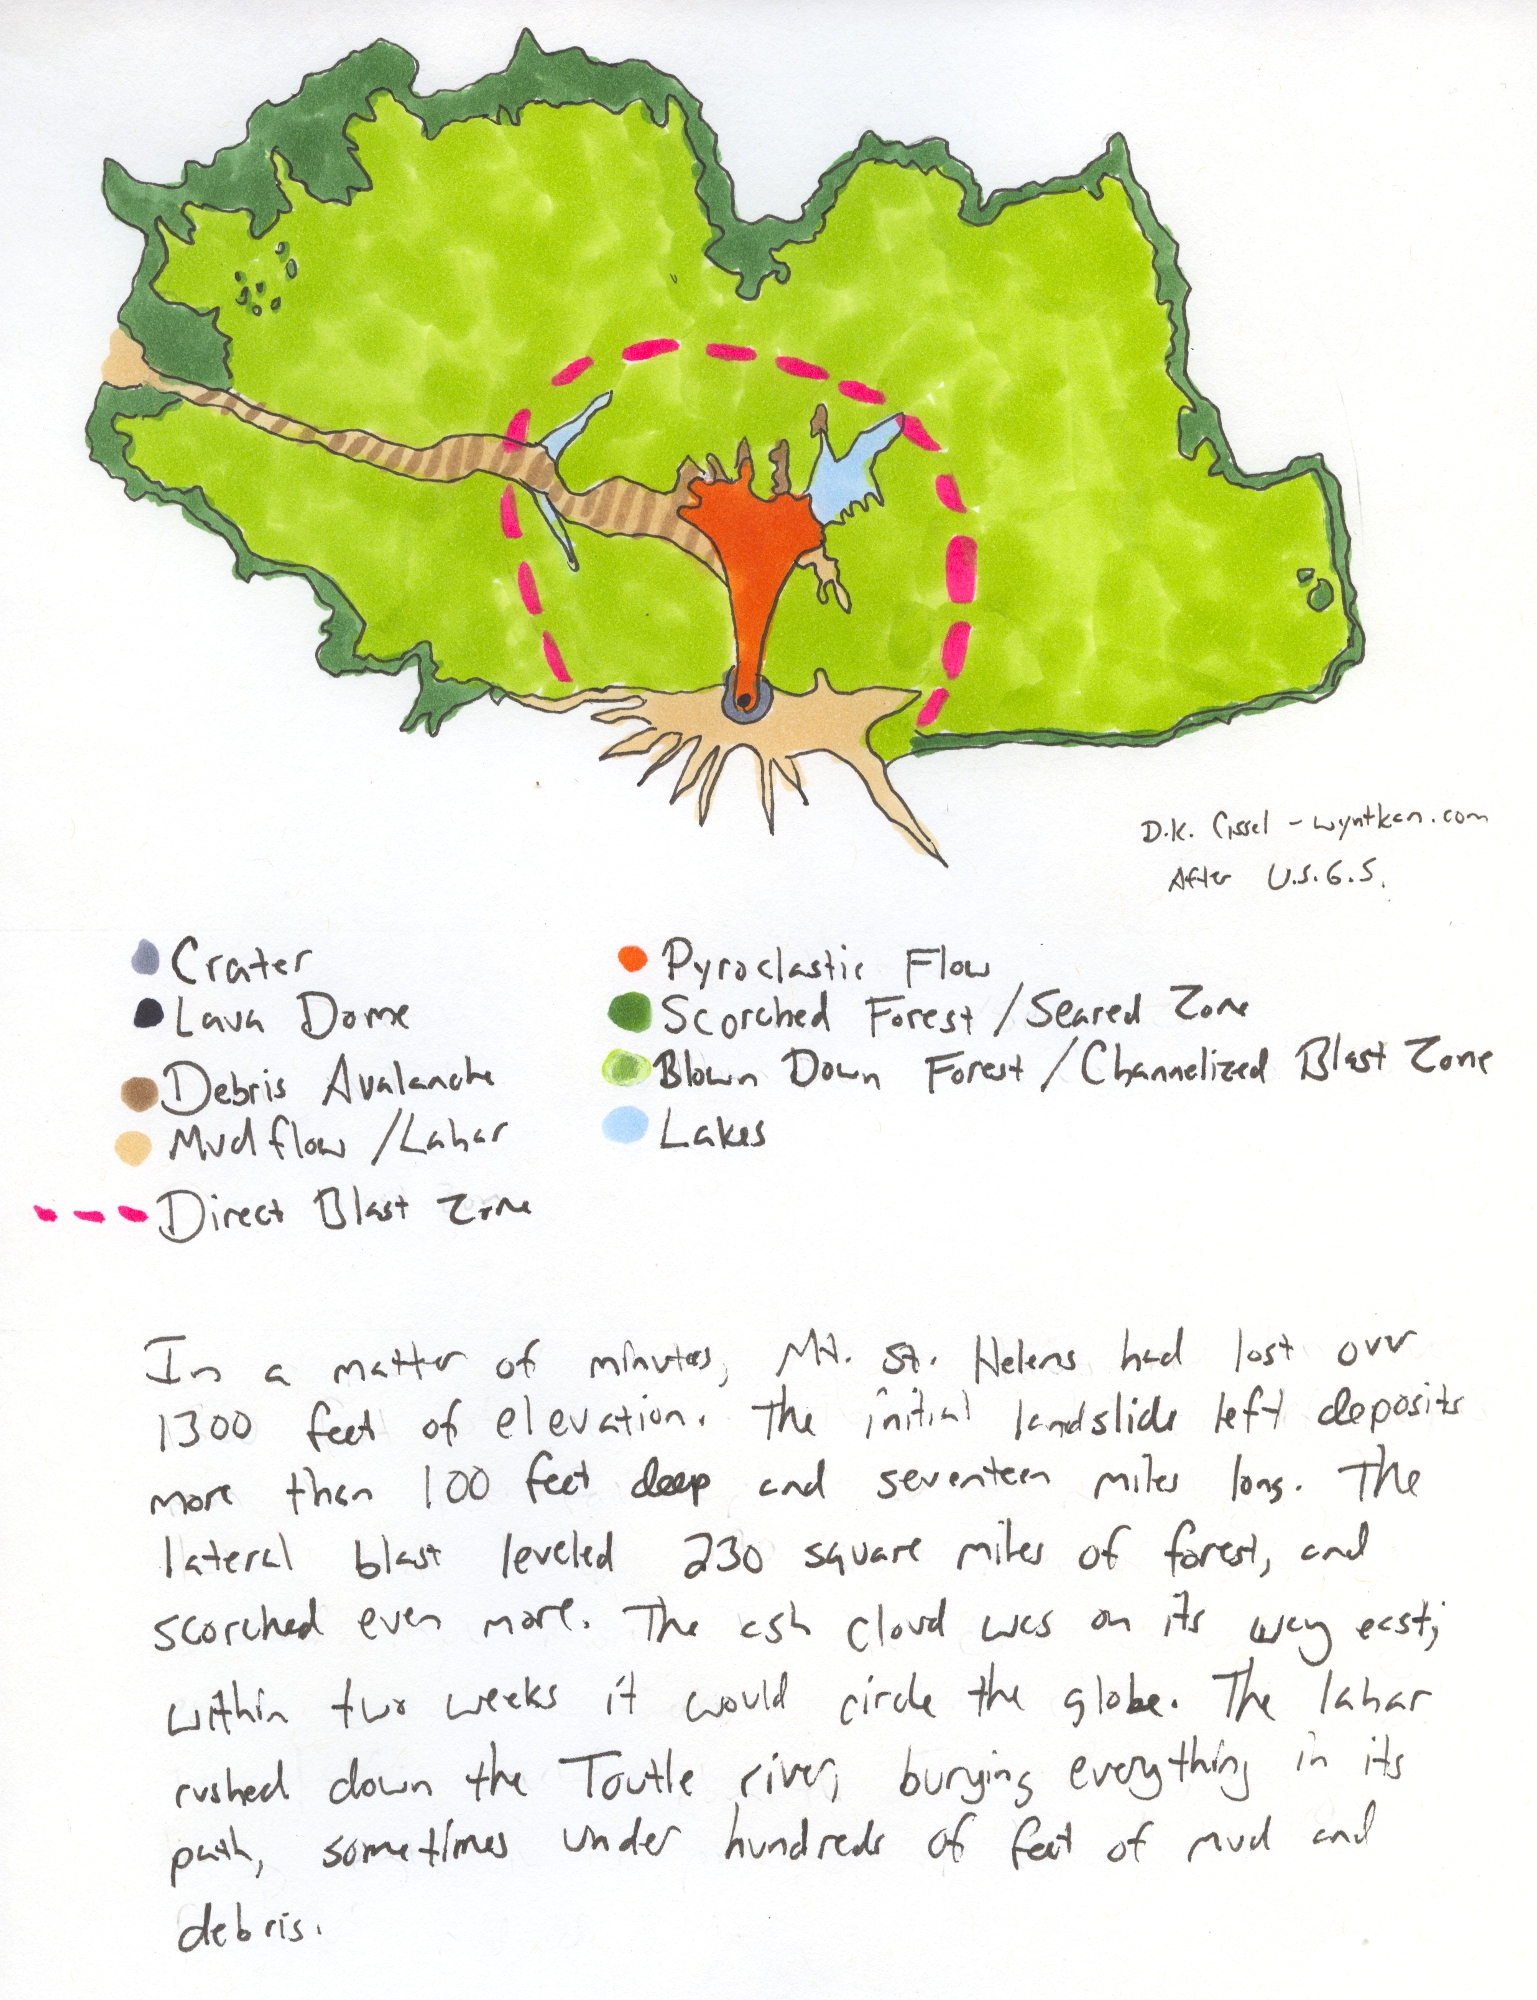 D.K. Cissel - wyntken.com
After U.S.G.S.
Crater
Lava Dome
Debris Avalanche
Mudflow /Lahar
Direct Blast Zone
Pyroclastic Flow
Scorched Forest /Seared Zone
Blown Down Forest /Channelized Blast Zone
Lakes
In a matter of minutes, Mt. St. Helens had lost over
1300 feet of elevation. The initial landslide left deposits
more than 100 feet deep and seventeen miles long. The
lateral blast leveled 230 square miles of forest, and
scorched even more. The ash cloud was on its way east;
within two weeks it would circle the globe. The lahar
rushed down the Toutle river, burying everything in its
path, sometimes under hundreds of feet of mud and
debris.